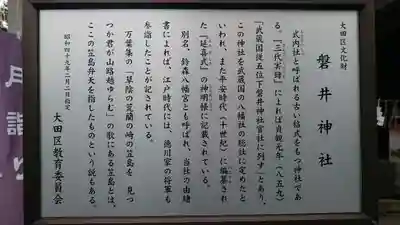 大田区文化財
磐井神社
式内社と呼ばれる古い格式をもつ神社であ
る。『三代実録』によれば貞観元年(八五九)
「武蔵国従五位下磐井神社官社に列す」とあり、
この神社を武蔵国の八幡社の総社に定めたと
いわれ、また平安時代(十世紀)に編集され
た『延喜式』の神明帳に記載されている。
別名、鈴森八幡宮とも呼ばれ、当社の由緒
書によれば、江戸時代には、徳川家の将軍も
参詣したことが記されている。
万葉集の「草陰の荒藺の崎の笠島を見つ
つか君が山路越ゆらむ」の歌にある笠島とは、
ここの笠島弁天を指したものという説もある。
昭和四十九年二月二日指定
大田区教育委員会
月詣り